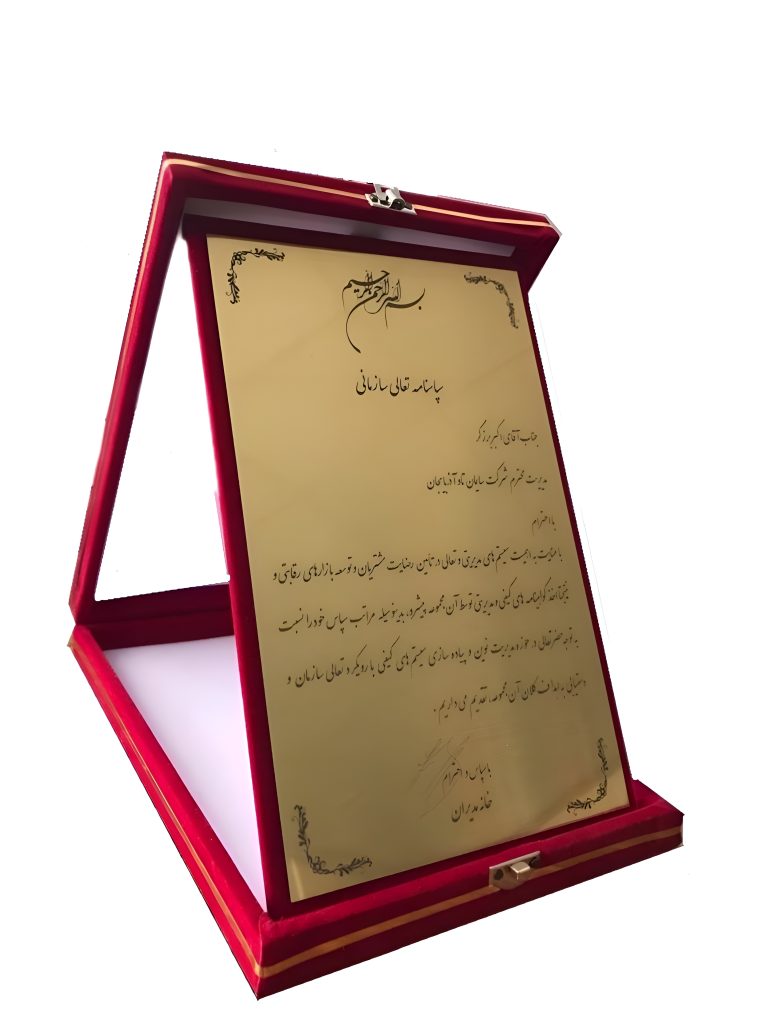 بسم الله الرحمن الرحیم
سپاسنامه تعالی سازمانی
جناب آقای اکبر برزگر
مدیریت محترم شرکت سایمان تاو آذربایجان
با احترام
با عنایت به اهمیت سیستم های مدیریتی و تعالی در تأمین رضایت مشتریان و توسعه بازارهای رقابتی و
نتیجتاً اخذ گواهینامه های کیفی و مدیریتی توسط آن مجموعه پیشرو، بدینوسیله مراتب سپاس خود را نسبت
به توجه حضرتعالی در حوزه مدیریت نوین و پیاده سازی سیستم های کیفی با رویکرد تعالی سازمان و
دستیابی به اهداف کلان آن مجموعه، تقدیم می داریم.
با سپاس و احترام
خانه مدیران